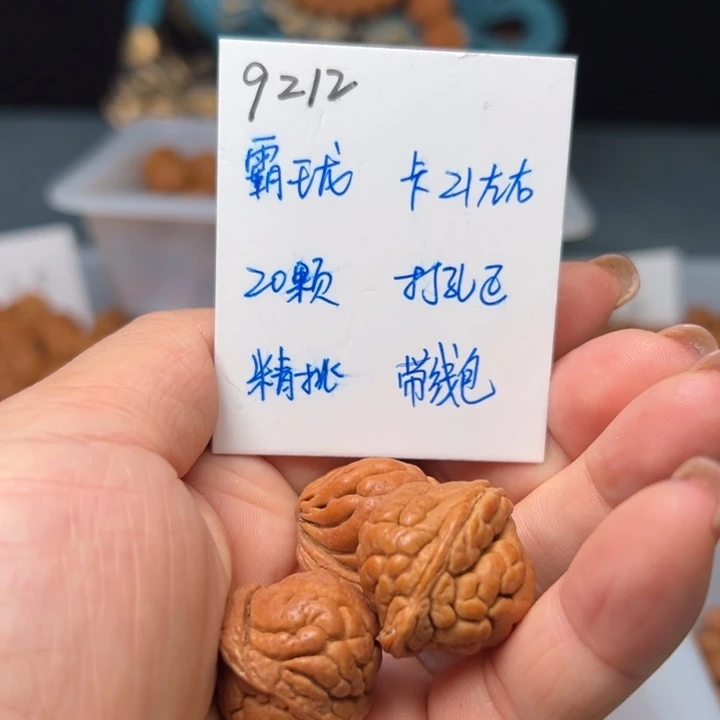 9212
霸王珑 卡21左右
20颗 打孔包
精挑 带线包